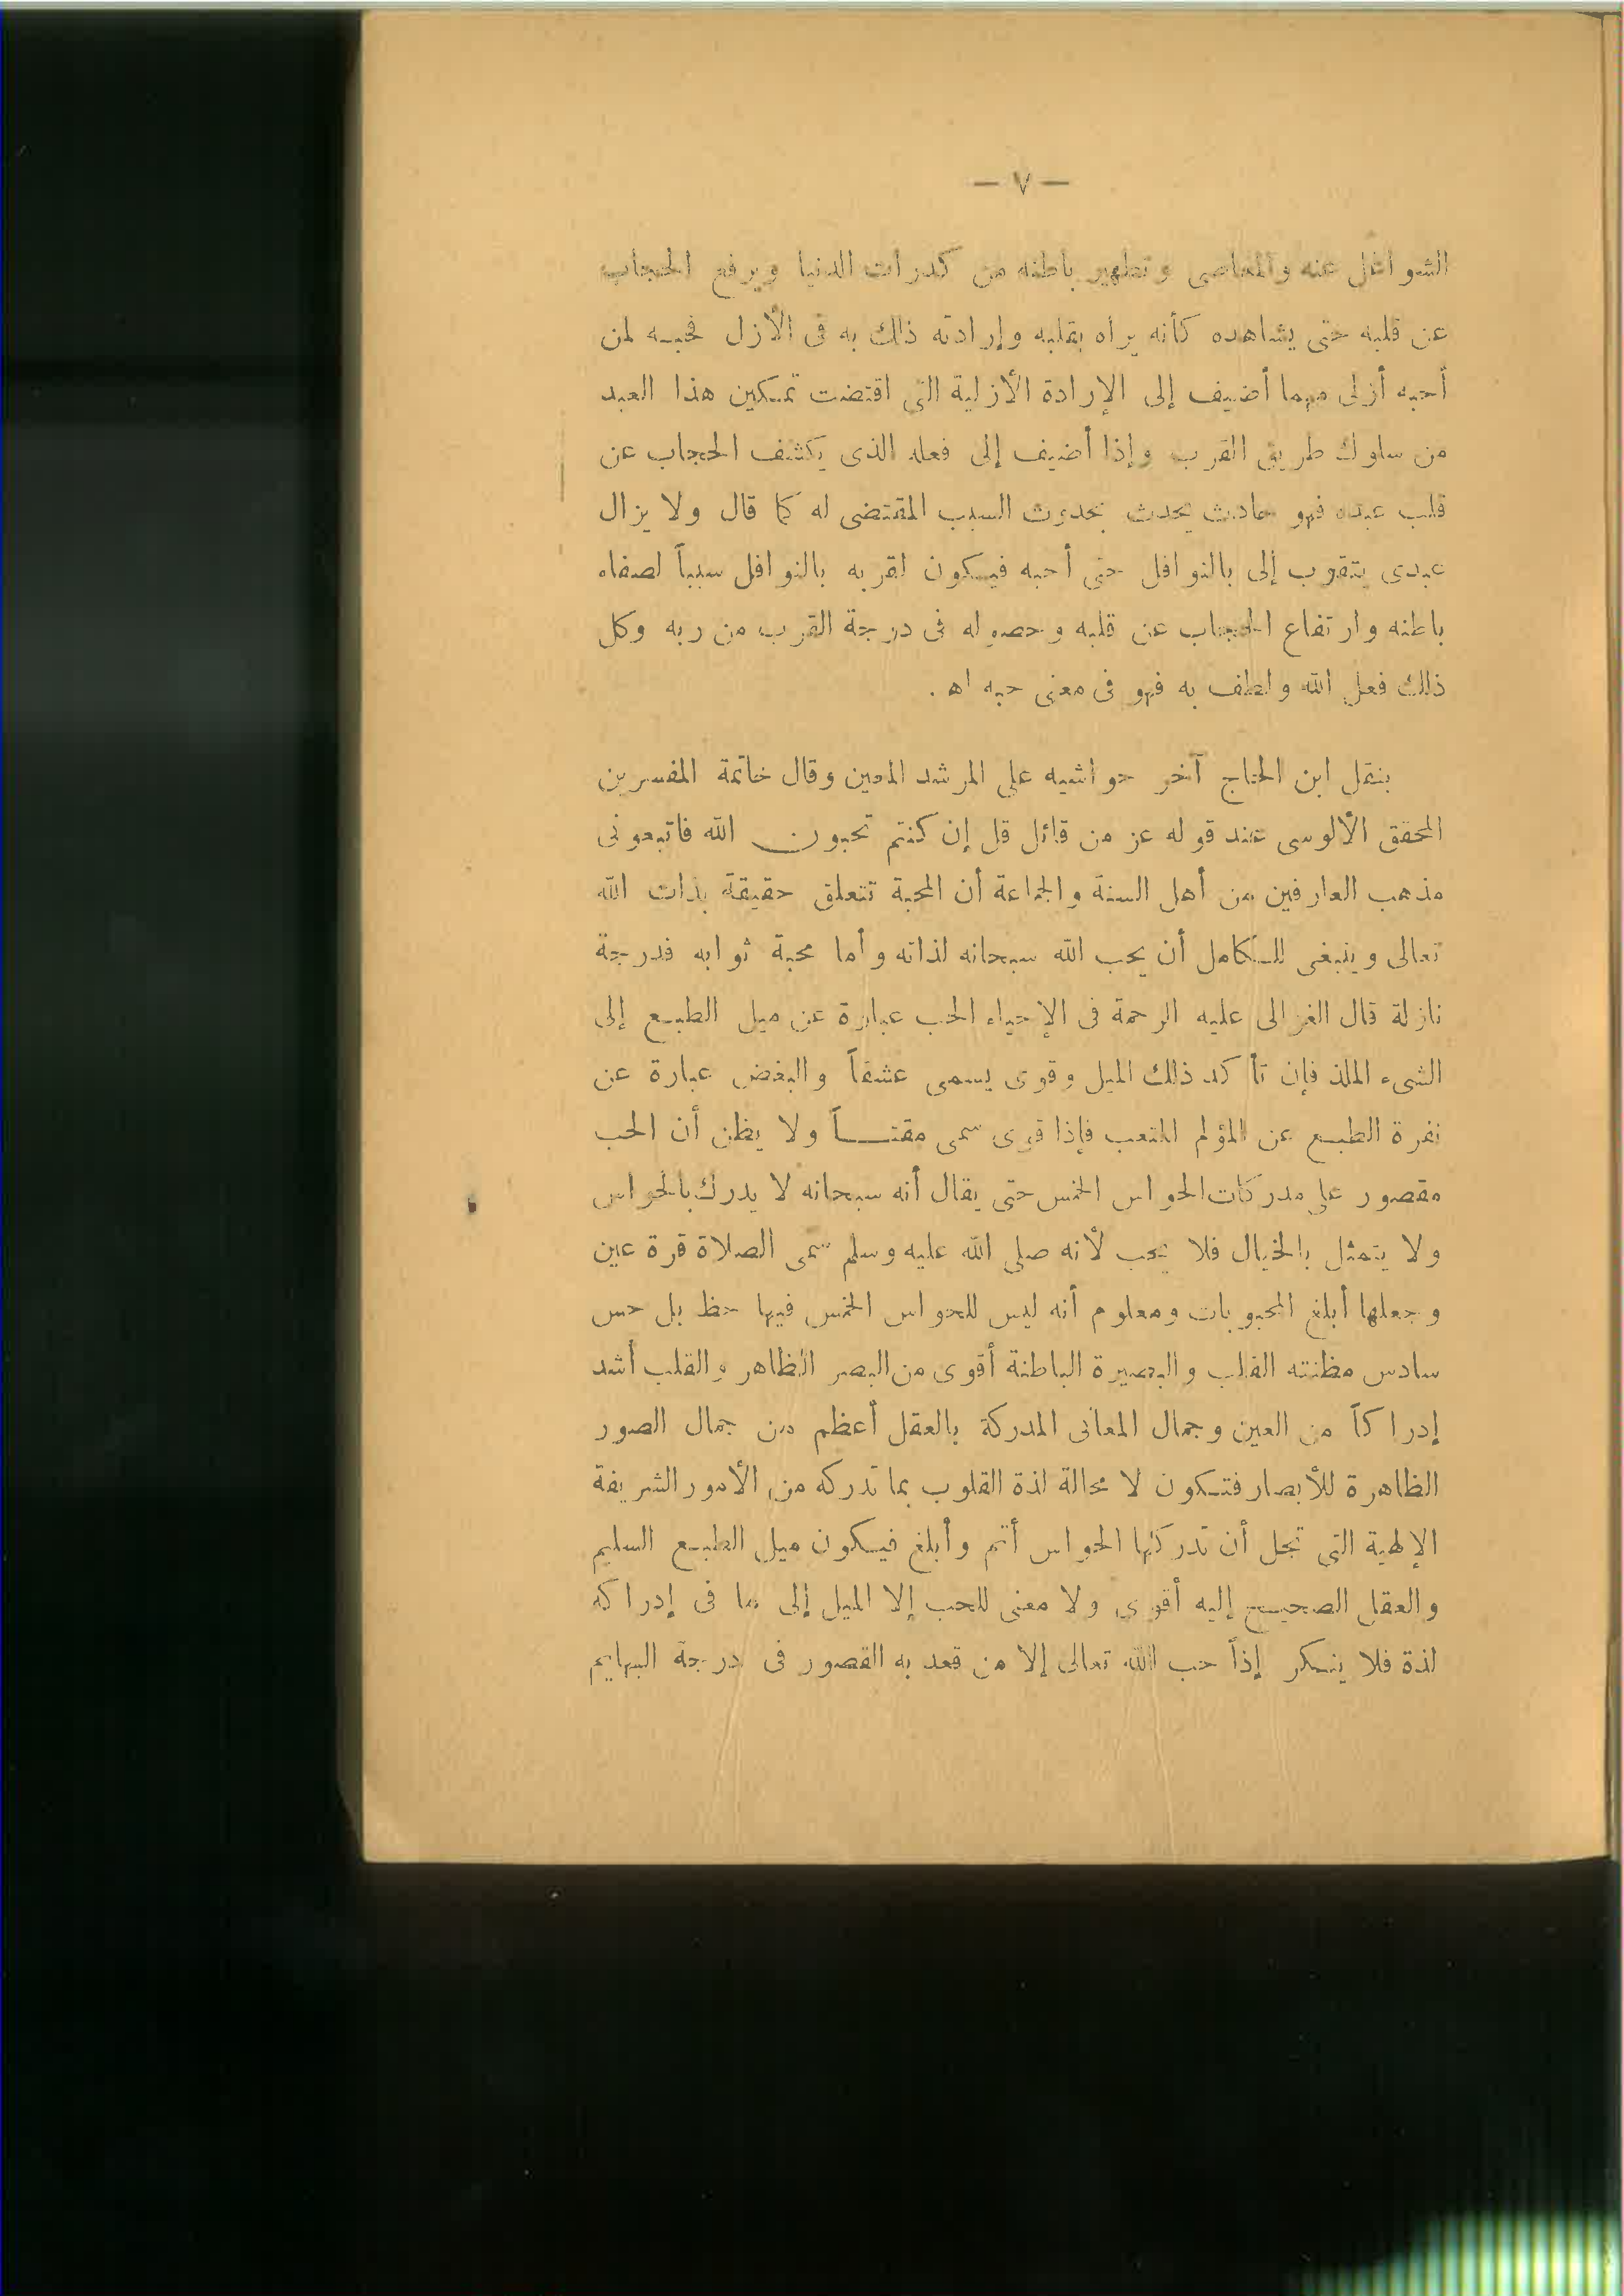 — ٧ —
الشواغل عنه والمعاصى وتطهير باطنه من كدرات الدنيا ويرفع الحجاب
عن قلبه حتى يشاهده كأنه يراه بقلبه وإرادته ذلك به فى الأزل فحبه لمن
أحبه أزلى مهما أضيف إلى الإرادة الأزلية التى اقتضت تمكين هذا العبد
من سلوك طريق القرب وإذا أضيف إلى فعله الذى يكشف الحجاب عن
قلب عبده فهو حادث يحدث بحدوث السبب المقتضى له كما قال ولا يزال
عبدى يتقرب إلى بالنوافل حتى أحبه فيكون تقربه بالنوافل سبباً لصفاء
باطنه وارتفاع الحجاب عن قلبه وحصوله فى درجة القرب من ربه وكل
ذلك فعل الله ولطف به فهو فى معنى حبه اه .
بنقل ابن الحاج آخر حواشيه على المرشد المعين وقال خاتمة المفسرين
المحقق الألوسى عند قوله عز من قائل قل إن كنتم تحبون الله فاتبعونى
مذهب العارفين من أهل السنة والجماعة أن المحبة تتعلق حقيقة بذات الله
تعالى وينبغى للكامل أن يحب الله سبحانه لذاته وأما محبة ثوابه فدرجة
نازلة قال الغزالى عليه الرحمة فى الإحياء الحب عبارة عن ميل الطبع إلى
الشىء الملذ فإن تأكد ذلك الميل وقوى يسمى عشقاً والبغض عبارة عن
نفرة الطبع عن المؤلم المتعب فإذا قوى سمى مقتاً ولا يظن أن الحب
مقصور على مدركات الحواس الخمس حتى يقال أنه سبحانه لا يدرك بالحواس
ولا يتمثل بالخيال فلا يحب لأنه صلى الله عليه وسلم سمى الصلاة قرة عين
وجعلها أبلغ المحبوبات ومعلوم أنه ليس للحواس الخمس فيها حظ بل حس
سادس مظنته القلب والبصيرة الباطنة أقوى من البصر الظاهر والقلب أشد
إدراكاً من العين وجمال المعانى المدركة بالعقل أعظم من جمال الصور
الظاهرة للأبصار فتكون لا محالة لذة القلوب بما تدركه من الأمور الشريفة
الإلهية التى تجل أن تدركها الحواس أتم وأبلغ فيكون ميل الطبع السليم
والعقل الصحيح إليه أقوى ولا معنى للحب إلا الميل إلى ما فى إدراكه
لذة فلا ينكر إذاً حب الله تعالى إلا من قعد به القصور فى درجة البهايم